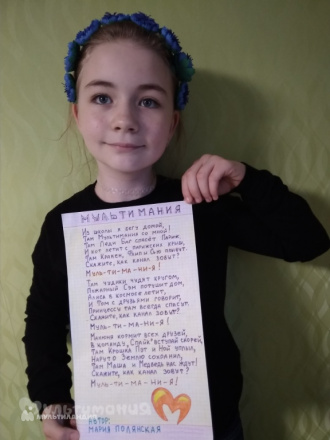 МУЛЬТИМАНИЯ
Из школы я бегу домой,
Там Мультимания со мной!
Там Леди Баг спасёт Париж
И кот летит с парижских крыш,
Там Крокен, Фил и Сью
Скажите, как канал зовут?
Муль-ти-ма-ни-я!
Там чуддики чудят кругом,
Пожарный Сэм потушит дом,
Алиса в космосе летит,
И Том с друзьями говорит,
Принцессы там всегда спасут.
Скажите, как канал зовут?
Муль-ти-ма-ни-я!
Минюня кормит всех друзей,
В команду, Спайк вступай скорей,
Там Крошка Пот и Ной уплыл,
Наруто Землю сохранил,
Там Маша и Медведь нас ждут!
Скажите, как канал зовут?
Муль-ти-ма-ни-я!
АВТОР:
МАРИЯ ПОЛЯНСКАЯ
Мультимания
МУЛЬТЛАНДИЯ